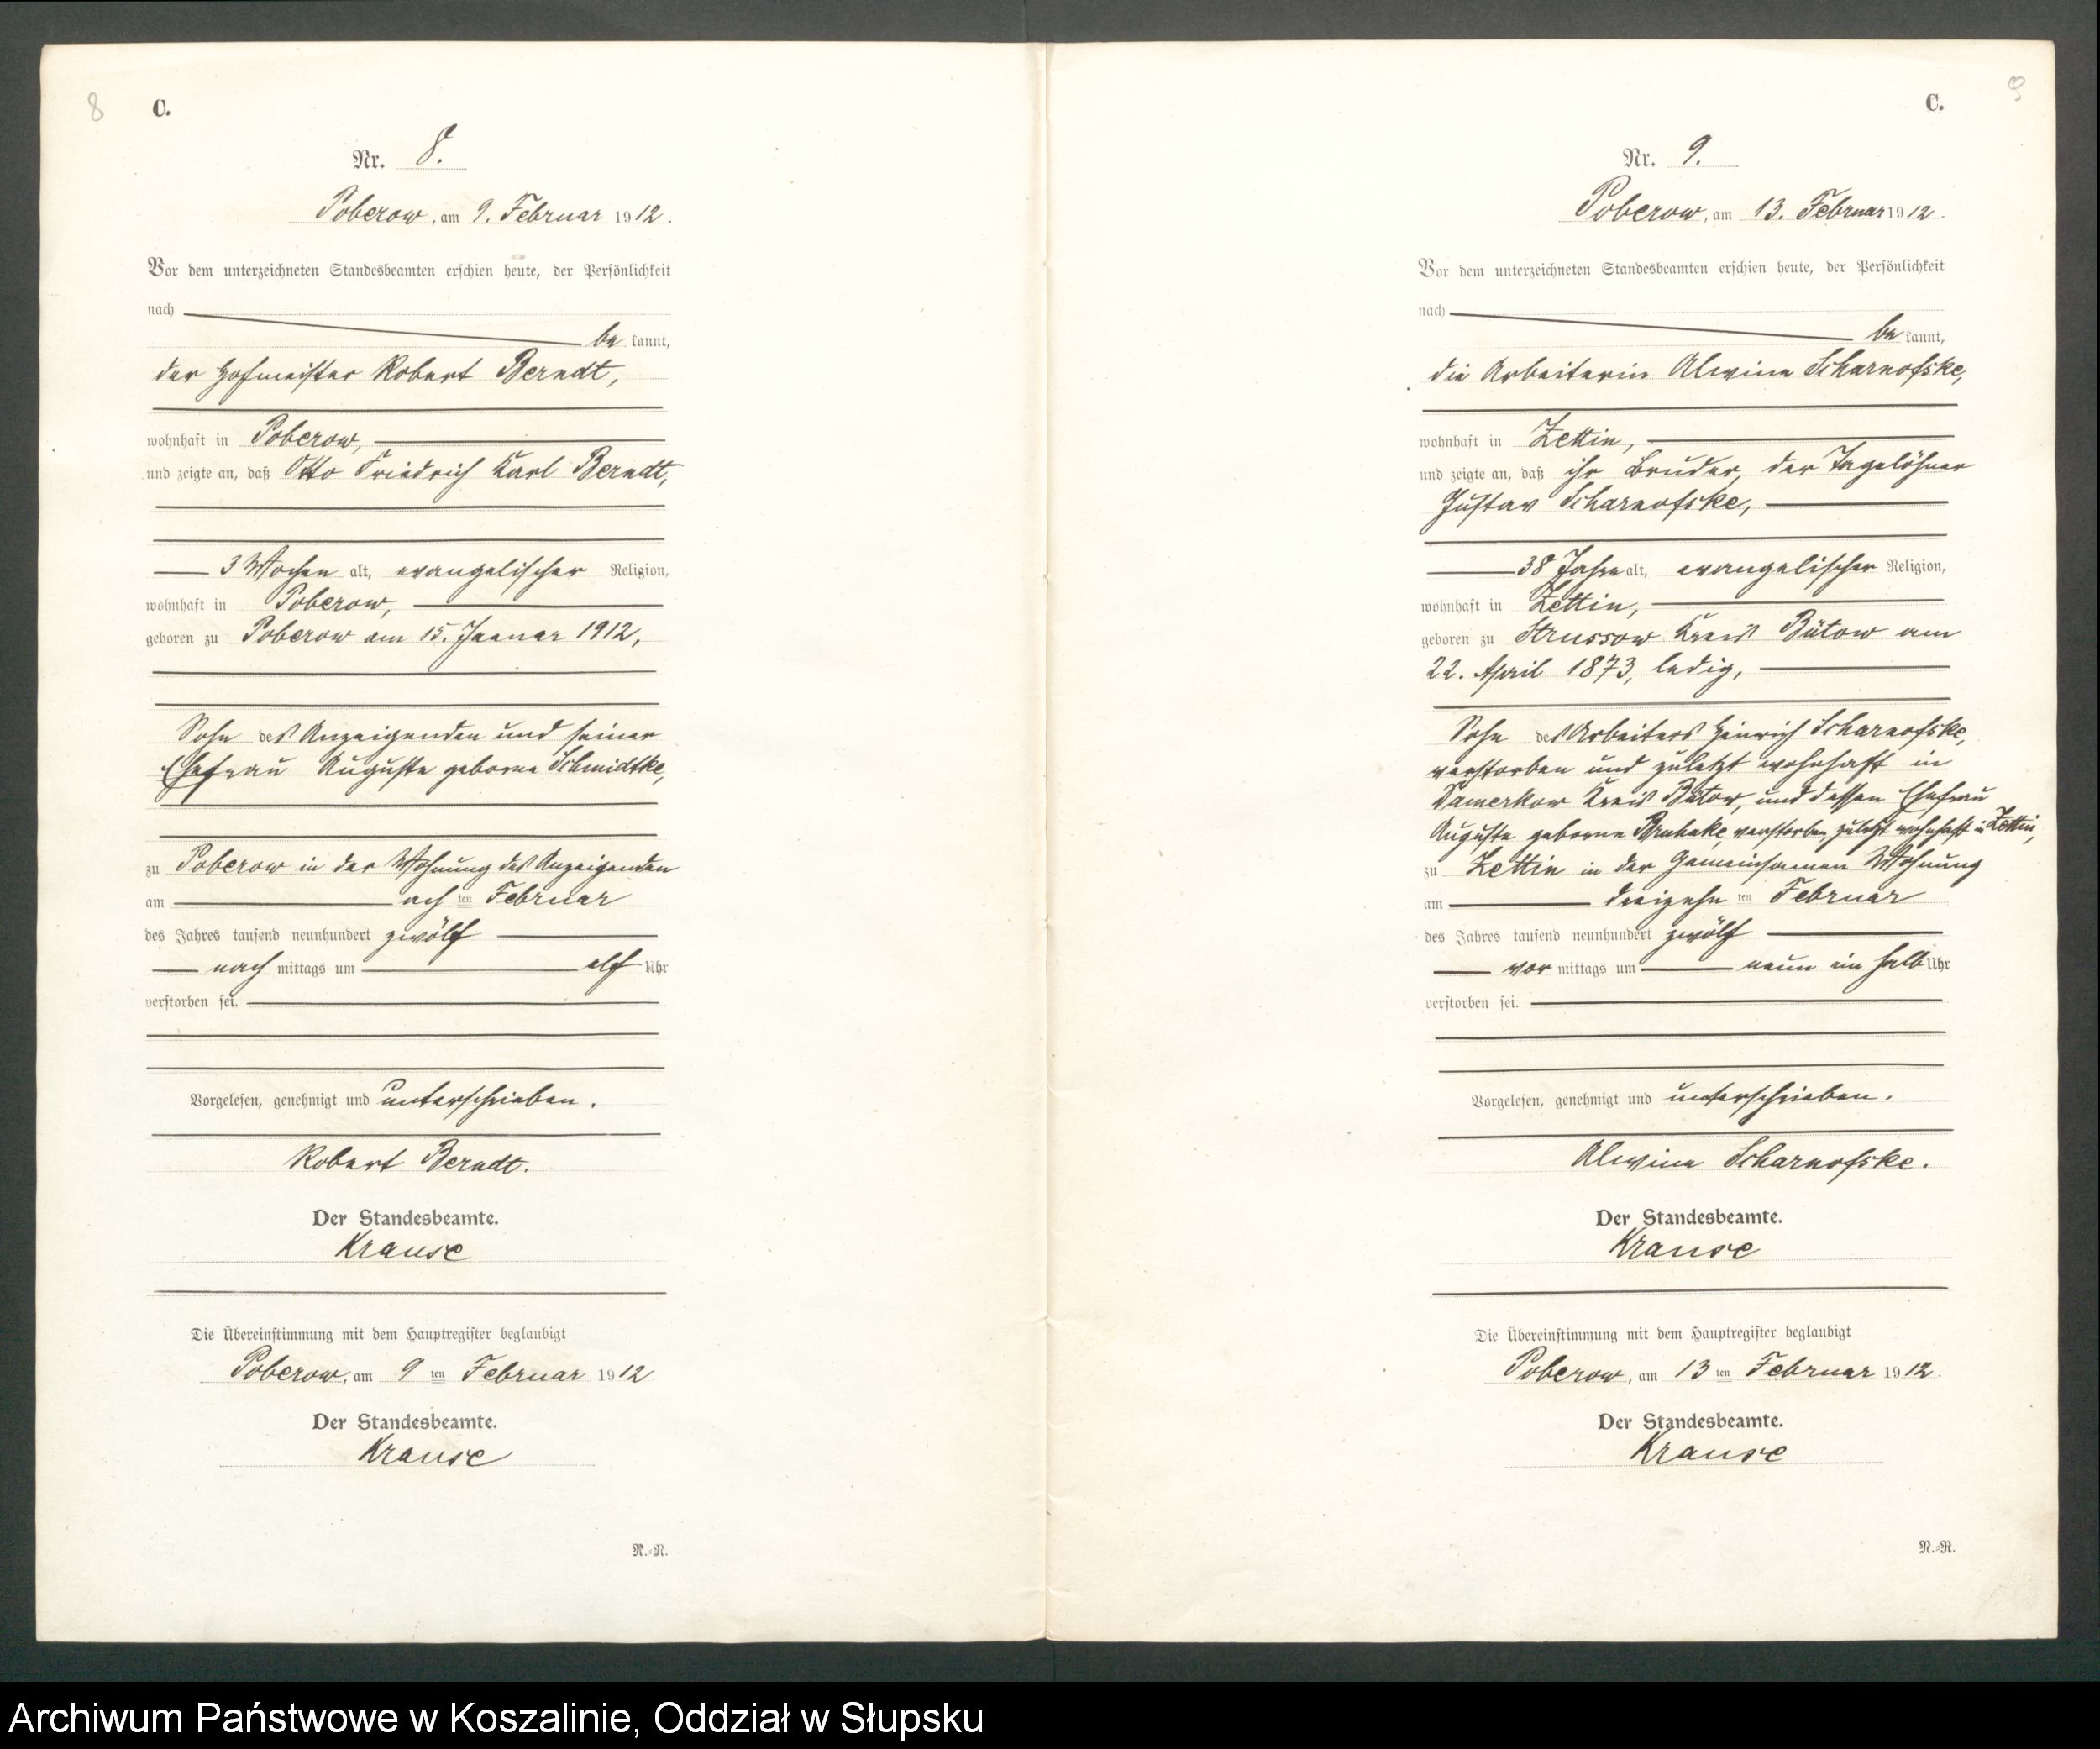 8
C.
Nr. 8.
Poberow, am 9. Februar 1912.
Vor dem unterzeichneten Standesbeamten erschien heute, der Persönlichkeit
nach
be kannt,
der Hofmeister Robert Berndt,
wohnhaft in Poberow,
und zeigte an, daß Otto Friedrich Karl Berndt,
3 Wochen alt, evangelischer Religion,
wohnhaft in Poberow,
geboren zu Poberow am 15. Januar 1912,
Sohn des Anzeigenden und seiner
Ehefrau Auguste geborne Schmidtke,
zu Poberow in der Wohnung des Anzeigenden
am ach ten Februar
des Jahres tausend neunhundert zwölf
nach mittags um elf Uhr
verstorben sei.
Vorgelesen, genehmigt und unterschrieben.
Robert Berndt.
Der Standesbeamte.
Krause
Die Übereinstimmung mit dem Hauptregister beglaubigt
Poberow, am 9 ten Februar 1912.
Der Standesbeamte.
Krause
N.=R.
9
C.
Nr. 9.
Poberow, am 13. Februar 1912.
Vor dem unterzeichneten Standesbeamten erschien heute, der Persönlichkeit
nach
be kannt,
die Arbeiterin Alwine Scharnofske,
wohnhaft in Zettin,
und zeigte an, daß ihr Bruder, der Tagelöhner
Gustav Scharnofske,
38 Jahre alt, evangelischer Religion,
wohnhaft in Zettin,
geboren zu Strussow Kreis Bütow am
22. April 1873, ledig,
Sohn des Arbeiters Heinrich Scharnofske,
verstorben und zuletzt wohnhaft in
Damerkow Kreis Bütow, und dessen Ehefrau
Auguste geborne verstorben, zuletzt wohnhaft in Zettin,
zu Zettin in der Gemeinsamen Wohnung
am dreizehn ten Februar
des Jahres tausend neunhundert zwölf
vor mittags um neun ein halb Uhr
verstorben sei.
Vorgelesen, genehmigt und unterschrieben.
Alwine Scharnofske.
Der Standesbeamte.
Krause
Die Übereinstimmung mit dem Hauptregister beglaubigt
Poberow, am 13 ten Februar 1912.
Der Standesbeamte.
Krause
N.=R.
Archiwum Państwowe w Koszalinie, Oddział w Słupsku